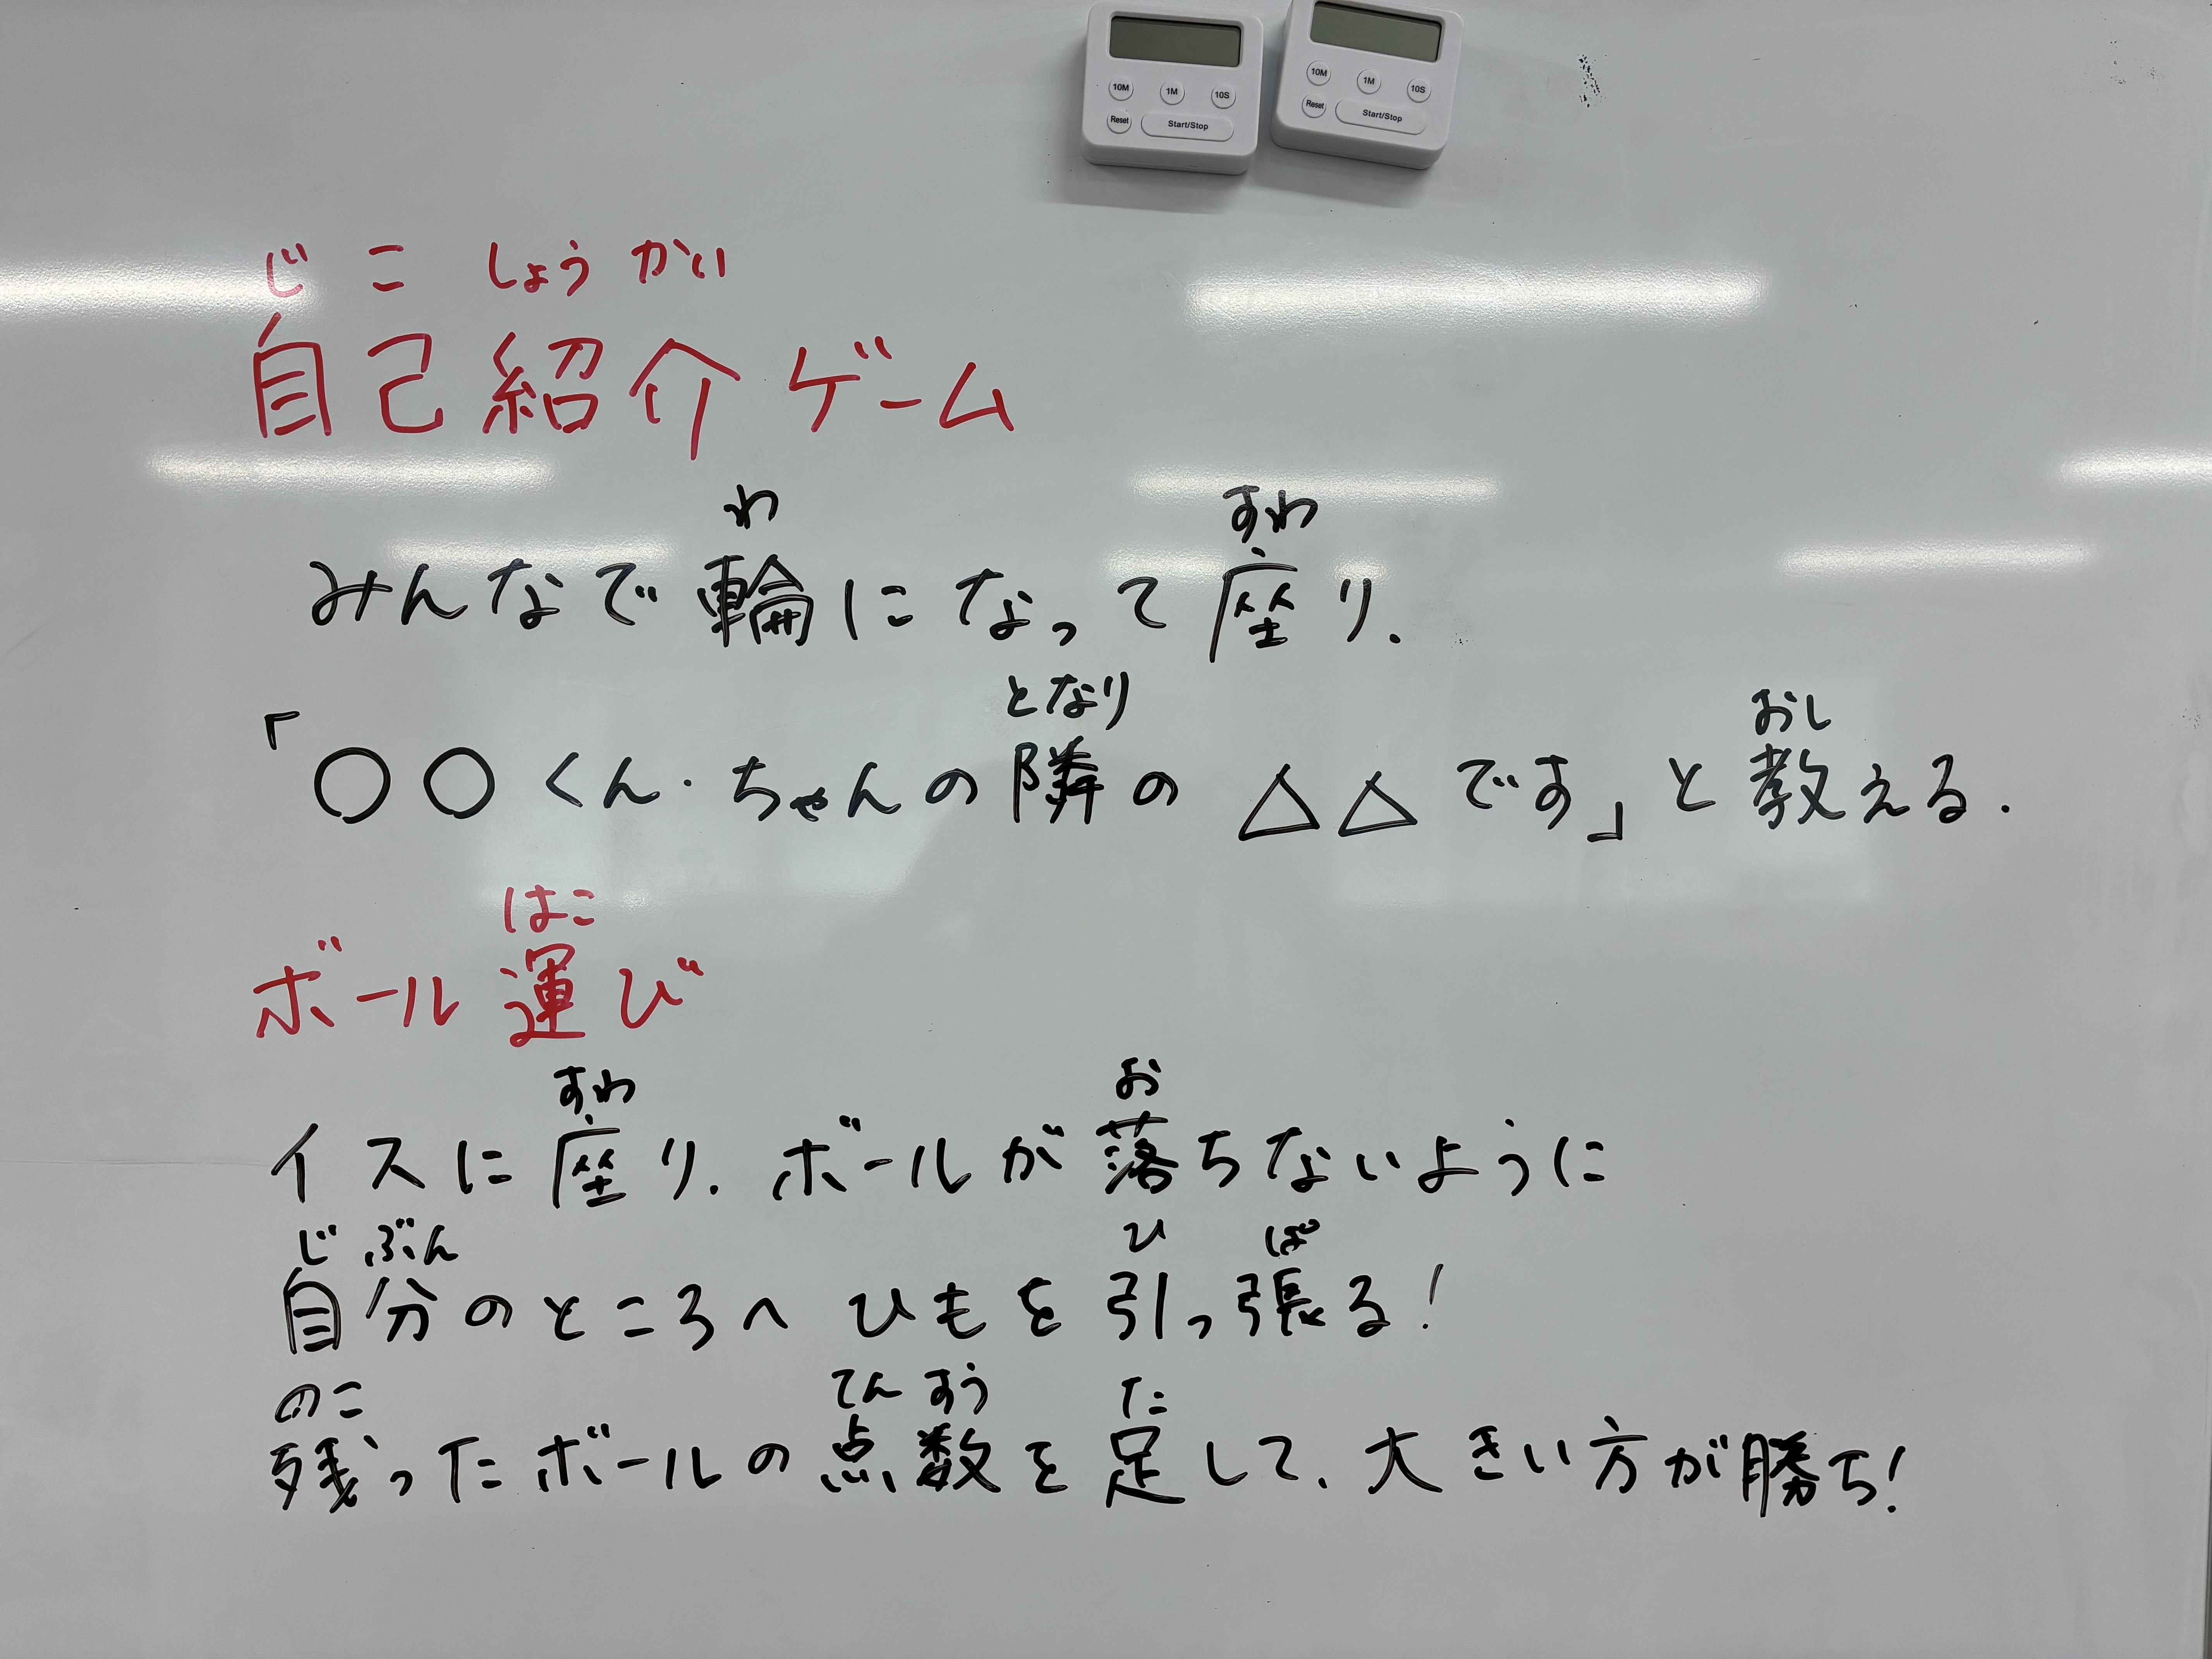 10M 1M 10S
Reset Start/Stop
10M 1M 10S
Reset Start/Stop
じ こ しょう かい
自己紹介ゲーム
わ すわ
みんなで輪になって座り.
となり おし
「○○くん・ちゃんの隣の △△です」と教える.
はこ
ボール運び
すわ お
イスに座り.ボールが落ちないように
じ ぶん ひ ぱ
自分のところへ ひもを引っ張る!
のこ てん すう た
残ったボールの点数を足して、大きい方が勝ち!